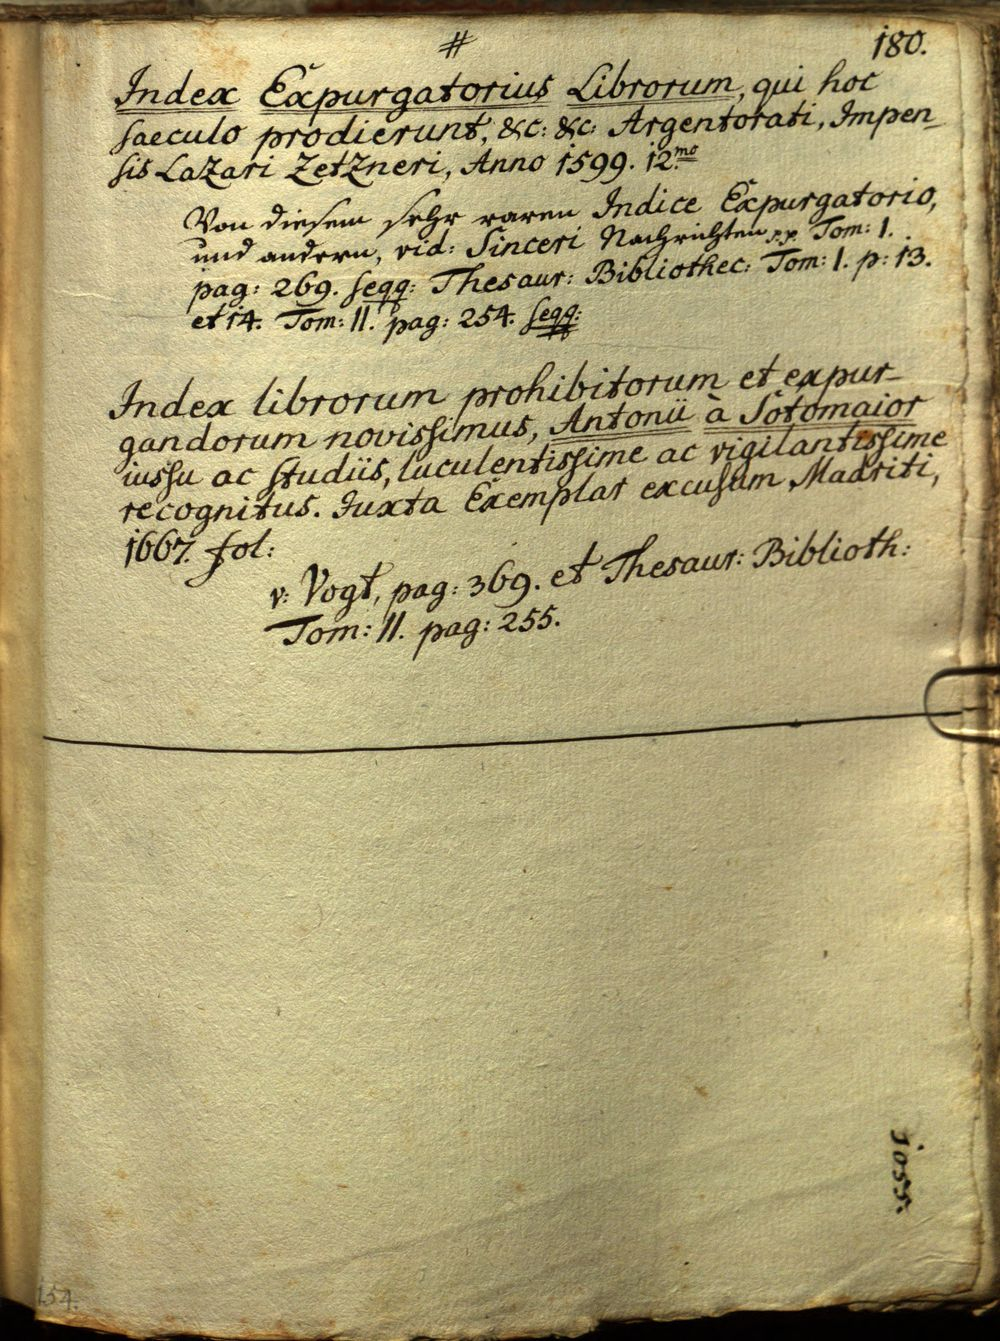 #
180.
Index Expurgatorius Librorum, qui hoc
saeculo prodierunt, &c: &c: Argentorati, Impen-
sis Lazari Zetzneri, Anno 1599. 12.mo
Von diesem sehr raren Indice Expurgatorio,
und andern, vid: Sinceri Nachrichten pp Tom: 1.
pag: 269. seqq: Thesaur: Bibliothec: Tom: 1. p: 13.
et 14. Tom: II. pag: 254. seqq:
Index librorum prohibitorum et expur-
gandorum novissimus, Antonii à Sotomaior
iussu ac studiis, luculentissime ac vigilantissime
recognitus. Iuxta Exemplar excusum Madriti,
1667. fol:
v: Vogt, pag: 369. et Thesaur: Biblioth:
Tom: II. pag: 255.
1055.
154.